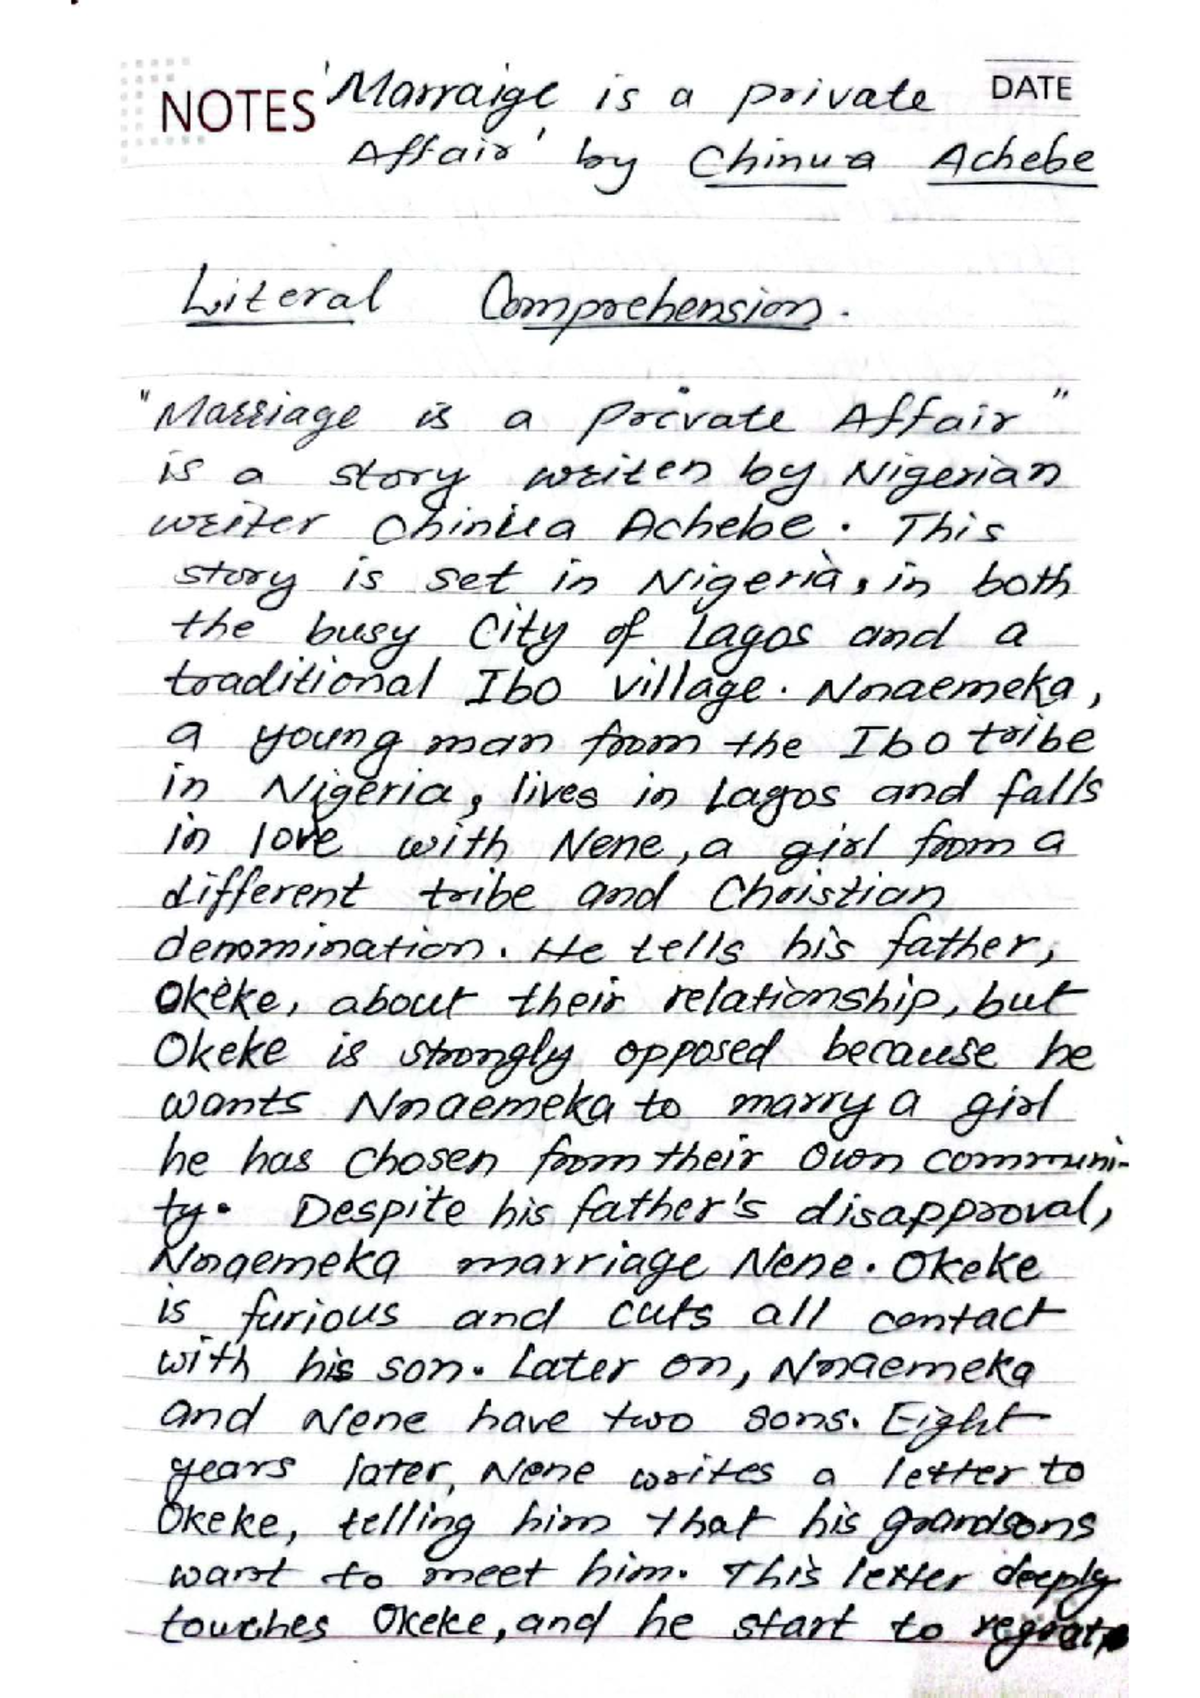 NOTES 'Marraige is a private DATE
Affair' by Chinua Achebe
Literal Comprehension.
"Marriage is a private Affair"
is a story writen by Nigerian
writer Chinua Achebe. This
story is set in Nigeria, in both
the busy City of Lagos and a
traditional Ibo village. Nnaemeka,
a young man from the Ibo tribe
in Nigeria, lives in Lagos and falls
in love with Nene, a girl from a
different tribe and Christian
denomination. He tells his father,
Okeke, about their relationship, but
Okeke is strongly opposed because he
wants Nnaemeka to marry a girl
he has chosen from their own communi-
ty. Despite his father's disapproval,
Nnaemeka marriage Nene. Okeke
is furious and cuts all contact
with his son. Later on, Nnaemeka
and Nene have two sons. Eight
years later, Nene writes a letter to
Okeke, telling him that his grandsons
want to meet him. This letter deeply
touches Okeke, and he start to regrat